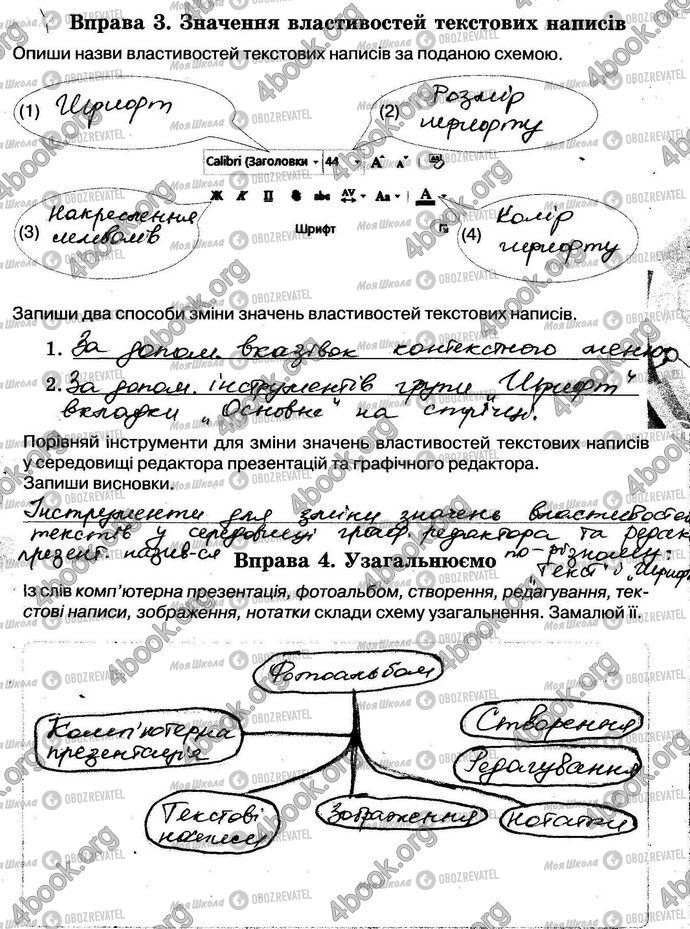 Вправа 3. Значення властивостей текстових написів
Опиши назви властивостей текстових написів за поданою схемою.
(1) Шрифт
(2) Розмір
шрифту
Calibri (Заголовки 44 А А
Ж К П S abc AV Aa А
Шрифт
(3) Накреслення
символів
(4) Колір
шрифту
Запиши два способи зміни значень властивостей текстових написів.
1. За допом. вказівок контекстного меню
2. За допом. інструментів групи „Шрифт"
вкладки „Основне" на стрічці.
Порівняй інструменти для зміни значень властивостей текстових написів
у середовищі редактора презентацій та графічного редактора.
Запиши висновки.
Інструменти для зміни значень властивостей
текстів у середовищі граф. редактора та редак
презент. назив-ся по-різному:
„Текст" і „Шрифт
Вправа 4. Узагальнюємо
Із слів комп'ютерна презентація, фотоальбом, створення, редагування, тек-
стові написи, зображення, нотатки склади схему узагальнення. Замалюй її.
Фотоальбом
Комп'ютерна
презентація
Створення
Редагування
Текстові
написи
Зображення
Нотатки
4book.org
Моя Школа
OBOZREVATEL